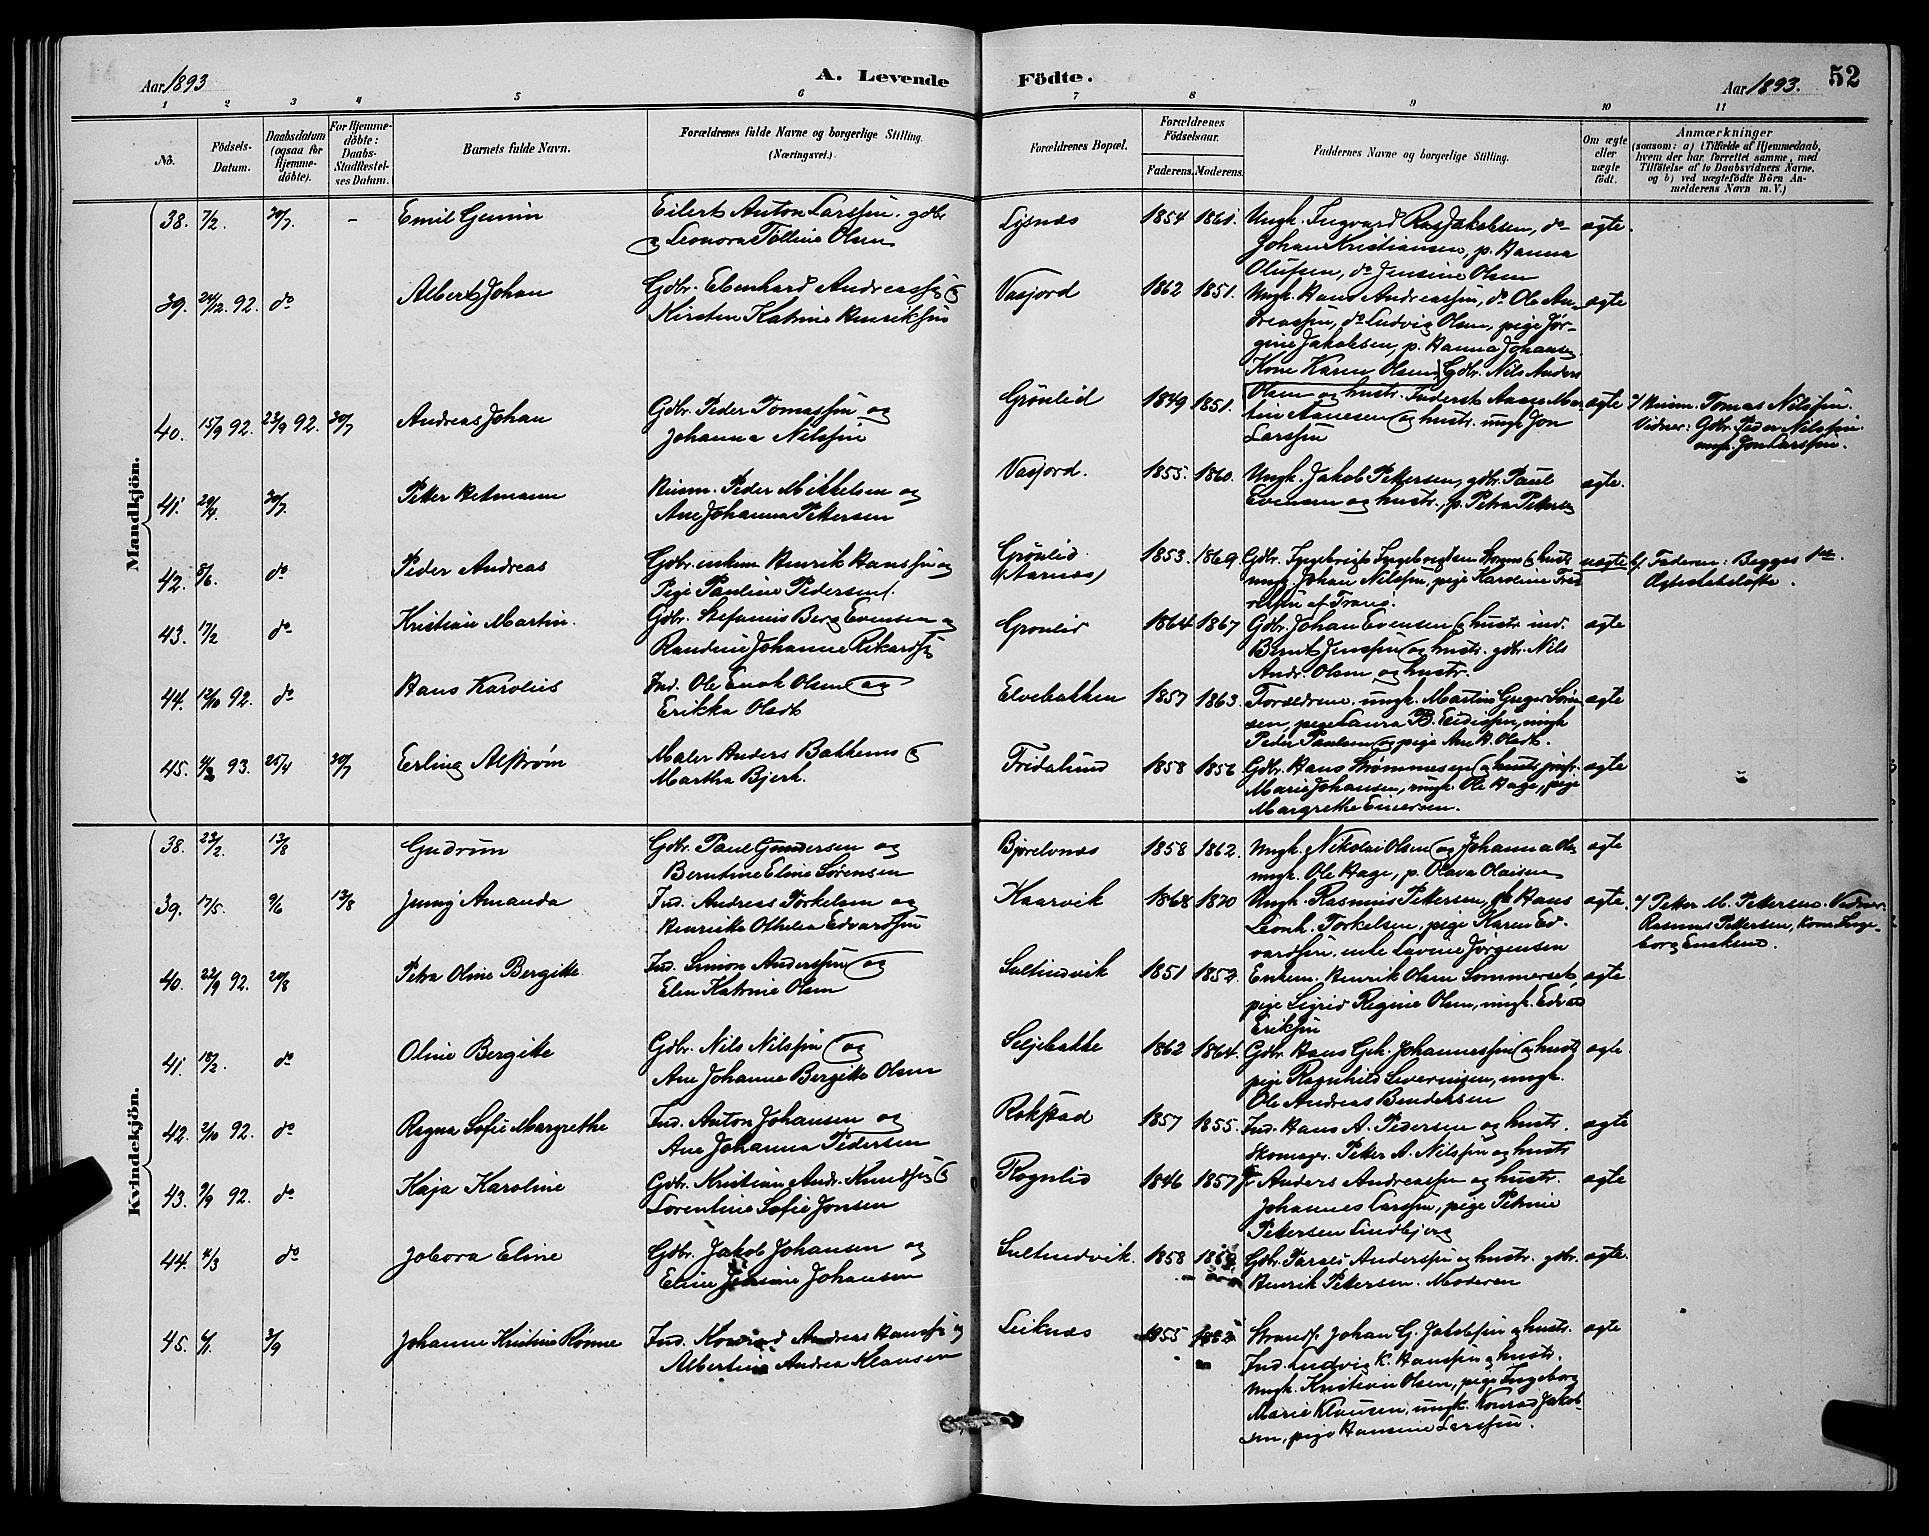 Aar 1893
A. Levende Födte.
Aar 1893. 52
1 2 3 4 5 6 7 8 9 10 11
No.
Födsels-Datum.
Daabsdatum (ogsaa for Hjemme-döbte).
For Hjemme-döbte: Daabs-Stadfæstel-ses Datum.
Barnets fulde Navn.
Forældrenes fulde Navne og borgerlige Stilling. (Næringsvei.)
Forældrenes Bopæl.
Forældrenes Födselsaar.
Faderens. Moderens.
Faddernes Navne og borgerlige Stilling.
Om ægte eller uægte födt.
Anmærkninger
(saasom: a) i Tilfælde af Hjemmedaab, hvem der har forrettet samme, med Tilföielse af to Daabsvidners Navne. og b) ved uægtefödte Börn An-melderens Navn m. V.)
Mandkjön.
38. 7/2. 30/7. - Emil Gunin
Eilert Anton Larssen. gdbr
og Leonora Tolline Olsen
Lysnæs 1854 1861.
Ungk. Ingvard Jakobsen, do
Johan Kristiansen, p. Hanna
Olufsen, do Jensine Olsen
ægte.
39. 24/12 92. do Albert Johan
Gdbr. Ebenhard Andreassen og
Kirsten Katrine Henriksen
Vasjord 1862 1851.
Ungk. Hans Andreassen, do Ole An-
dreassen, do Ludvig Olsen, pige Jör-
gine Jakobsen, p. Hanna Johansen
Kone Karen Olsen, Gdbr. Nils Anders
ægte
40. 15/9 92. 23/9 92. 30/7 Andreas Johan
Gdbr. Peder Tomassen og
Johanna Nilssen
Grönlid 1849 1851.
Olsen og hustr. Aane Mar-
tin Aanesen og hustr. ungk Jon
Larssen
ægte
a/ Tomas Nilssen.
Vidner: Gdbr. Peder Nilssen
ungk. Jon Larssen.
41. 29/4. 30/7 Peter Hetmann
Peder Mikkelsen og
Ane Johanna Petersen
Vasjord. 1855. 1860.
Ungk. Jakob Pettersen, gdbr. Paul
Evensen og hustr., p. Petra Petersen
ægte.
42. 8/6. do Peder Andreas
Gdbr. enkem Henrik Hanssen og
Pige Pauline Pedersen.
Grönlid
(Aarnes)
1853. 1869.
Gdbr. Ingebrigt og hustr
ungk Johan Nilssen, pige Karoline
af Tranö.
uægte
b/ Faderen: Begges 1ste
Ægteskabsløfte.
43. 17/2 do Kristian Martin.
Gdbr. Stefanus Berg Evensen og
Randine Johanne Rikardsen
Grönlid 1864 1867
Gdbr. Johan Evensen og hustr ind.
Bernt Jenssen og hustr. gdbr. Nils
Andr. Olsen og hustr.
ægte
44. 12/10 92. do Hans Karolius
Ind. Ole Enok Olsen og
Erikka Oladt.
Elvebakken 1857 1863.
Forældrene. ungk. Martin Greger Sören
sen, pige Laura B. ungk
Peder Paulsen og pige Ane H. Oladt.
ægte
45. 4/2 93. 25/4 30/7 Erling Alström
Maler Anders Bakkemo og
Martha Bjerk.
Fridalund 1858 1856
Gdbr. Hans Strömmesen og hustr jomfr.
Marie Johansen, ungk. Ole Hage, pige
Margrethe Einersen.
ægte
Kvindekjön.
38. 23/2. 13/8 Gudrun
Gdbr. Paul Gundersen og
Berntine Eline Sörensen
Bjorelvnæs 1858 1862.
Ungk. Nikolai Olsen og Johanna Olsen
ungk. Ole Hage, p. Olava Olaisen
ægte
39. 17/5. 9/6 13/8 Jenny Amanda
Ind. Andreas Torkelsen og
Henrikke Othelia Edvardsen
Kaarvik 1868 1870
Ungk. Rasmus Pettersen, Hans
Leonh. Torkelsen, pige Karen Ed-
vardsen. enke Lovine Jörgensen
ægte.
a/ Peter M. Pettersen. Vidner:
Rasmus Pettersen, kone Inge-
borg
40. 22/9 92. 20/8 Petra Oline Bergitte
Ind. Simon Anderssen og
Elen Katrine Olsen
Sultindvik 1851 1852.
Enkem. Henrik Olsen Sommerset,
pige Sigrid Regine Olsen, ungk. Edvard
Eriksen
ægte
41. 18/2. do Oline Bergitte
Gdbr. Nils Nilssen og
Ane Johanne Bergitte Olsen
Seljebakke 1862 1864.
Gdbr. Hans Geh. Johannessen og hustr
pige Ragnhild Severinsen, ungk.
Ole Andreas Bendiksen
ægte.
42. 2/10 92. do Ragna Sofie Margrethe
Ind. Anton Johansen og
Ane Johanna Pedersen
Rokstad 1857 1855.
Ind. Hans A. Pedersen og hustr.
Skomager. Peter A. Nilssen og hustr
ægte
43. 9/9 92. do Kaja Karoline
Gdbr. Kristian Andr. Knudsen og
Lorentine Sofie Jonsen
Rognlid 1846 1857
Anders Andreassen og hustr.
Johannes Larssen, pige Petrine
Petersen Lindbjerg
ægte
44. 4/3 do Jobora Eline
Gdbr. Jakob Johansen og
Eline Jensine Johansen
Sultindvik 1858
Gdbr. Anderssen og hustr. gdbr.
Henrik Petersen. Moderen
ægte.
45. 4/1. 3/9 Johanne Kristine Rönne
Ind. Konrad Andreas Hanssen og
Albertine Andrea Klausen
Leiknæs 1855 1862
Strands. Johan G. Jakobsen og hustr.
Ind. Ludvig K. Hanssen og hustr.
Ungk. Kristian Olsen, pige Ingeborg
Marie Klausen, ungk. Konrad Jakob-
sen, pige Hansine Larssen.
ægte